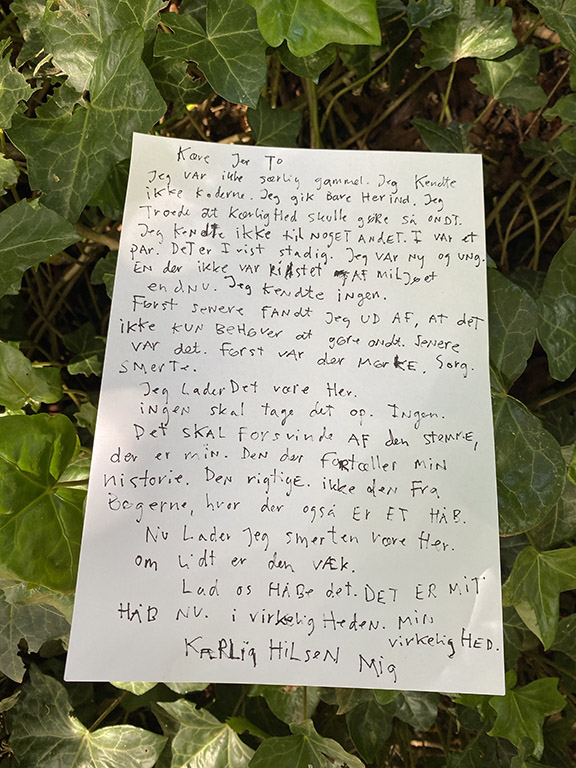 Kære Jer To
Jeg var ikke særlig gammel. Jeg Kendte
ikke koderne. Jeg gik Bare Herind. Jeg
Troede at KærligHed skulle gøre så ONDT.
Jeg KENDTE ikke til NOGET ANDET. I var et
par. Det er I vist stadig. Jeg var ny og ung.
EN der ikke var RiSTet AF MilJøet
endNU. Jeg Kendte ingen.
Først senere FANDT Jeg UD AF, AT det
ikke KUN BeHøver at gøre ondt. Senere
var det. Først var der MørKE. Sorg.
SMerTe.
Jeg LaderDet være Her.
ingen skal tage det op. Ingen.
DeT SKAL Forsvinde AF den stemme,
der er min. Den der FoRTæller MIN
Historie. Den rigtige. ikke den Fra
Bøgerne, hvor der også Er ET HÅB.
NU Lader Jeg smerten være Her.
om lidt er den VÆK.
Lad os HÅBe det. DET ER MIT
HÅB NU. i virkeligHeden. Min
virkeligHED.
KæRLig HiLSeN Mig